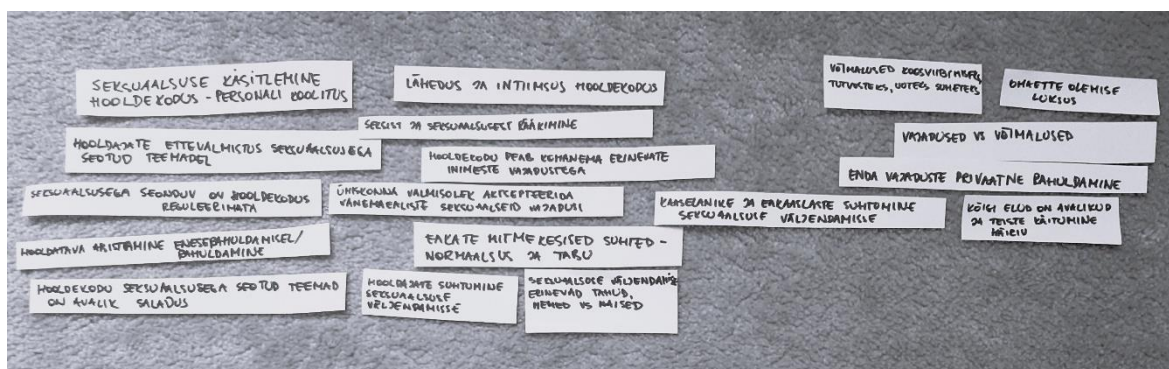 SEKSUAALSUSE KÄSITLEMINE
HOOLDEKODUS - PERSONALI KOOLITUS
HOOLDAJATE ETTEVALMISTUS SEKSUAALSUSEGA
SEOTUD TEEMADEL
SEKSUAALSUSEGA SEONDUV ON HOOLDEKODUS
REGULEERIMATA
HOOLDATAVA ABISTAMINE ENESERAHULDAMISEL/
RAHULDAMINE
HOOLDEKODU SEKSUAALSUSEGA SEOTUD TEEMAD
ON AVALIK SALADUS
LÄHEDUS JA INTIIMSUS HOOLDEKODUS
SEKSIST JA SEKSUAALSUSEST RÄÄKIMINE
HOOLDEKODU PEAB KOHANEMA ERINEVATE
INIMESTE VAJADUSTEGA
ÜHISKONNA VALMISOLEK AKTSEPTEERIDA
VANEMAEALISTE SEKSUAALSEID VAJADUSI
EAKATE MITMEKESISED SUHTED -
NORMAALSUS JA TABU
HOOLDAJATE SUHTUMINE
SEKSUAALSUSE
VÄLJENDAMISSE
SEKSUAALSUSE VÄLJENDAMISE
ERINEVAD TAHUD,
MEHED VS NAISED
KAASELANIKE JA EAKAASLASTE SUHTUMINE
SEKSUAALSUSE VÄLJENDAMISSE
VÕIMALUSED KOOSVIIBIMISEKS,
TUTVUSTEKS, UUTEKS SUHETEKS
OMAETTE OLEMISE
LUKSUS
VAJADUSED VS VÕIMALUSED
ENDA VAJADUSTE PRIVAATNE RAHULDAMINE
KÕIGI ELUD ON AVALIKUD
JA TEISTE KÄITUMINE
HÄIRIV